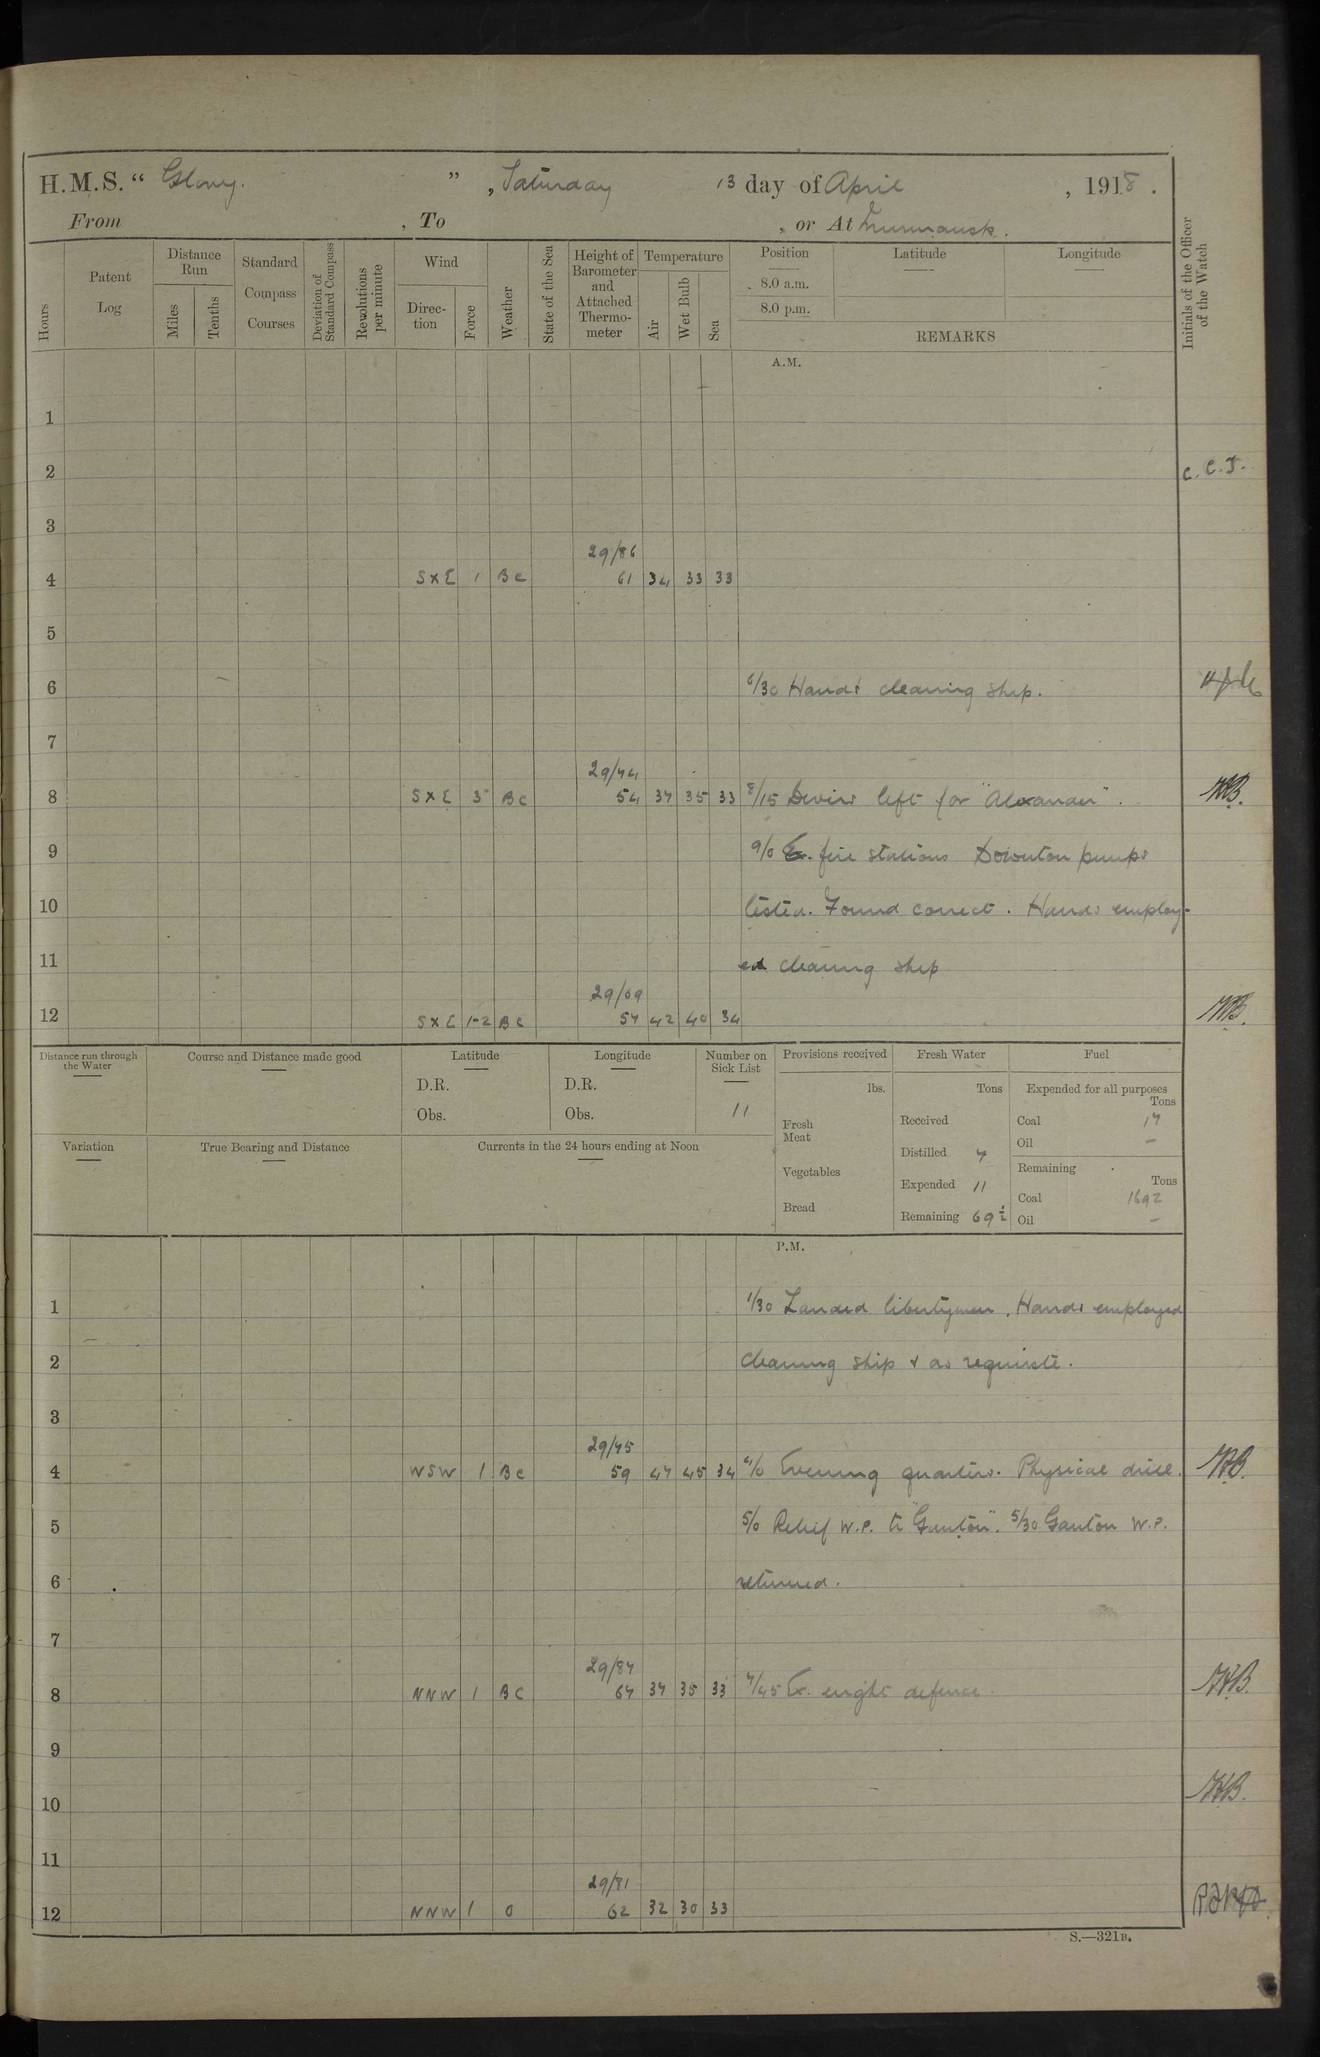 H.M.S. “ Glory. ” , Saturday 13 day of April , 1918 .
From , To , or At Murmansk.
Hours
Patent Log
Distance Run
Miles
Tenths
Standard Compass Courses
Deviation of Standard Compass
Revolutions per minute
Wind
Direc-tion
Force
Weather
State of the Sea
Height of Barometer and Attached Thermo-meter
Temperature
Air
Wet Bulb
Sea
Position
8.0 a.m.
8.0 p.m.
Latitude
Longitude
REMARKS
Initials of the Officer of the Watch
A.M.
1
2 C.C.J.
3
29/86
4 SXE 1 BC 61 34 33 33
5
6 6/30 Hands cleaning ship.
7
29/74
8 SXE 3 BC 54 37 35 33 8/15 Divisr left for "Alexander".
9 9/0 Ex. fire stations Downton pumps
10 tested. Found correct. Hands employ-
11 ed cleaning ship
29/69
12 SXE 1-2 BC 57 42 40 34
Distance run through the Water
Course and Distance made good
Latitude
D.R.
Obs.
Longitude
D.R.
Obs.
Number on Sick List
11
Provisions received
lbs.
Fresh Meat
Vegetables
Bread
Fresh Water
Tons
Received
Distilled 7
Expended 11
Remaining 69½
Fuel
Expended for all purposes
Tons
Coal 17
Oil —
Remaining
Tons
Coal 1692
Oil —
Variation
True Bearing and Distance
Currents in the 24 hours ending at Noon
P.M.
1 1/30 Landed libertymen. Hands employed
2 cleaning ship & as requisite.
3
29/75
4 WSW 1 BC 59 47 45 34 4/0 Evening quarters. Physical drill.
5 5/0 Relief W.P. to "Gunton". 5/30 Ganton W.P.
6 returned.
7
29/87
8 NNW 1 BC 67 37 35 33 7/45 Ex. night defence
9
10
11
29/81
12 NNW 1 O 62 32 30 33
S.—321B.